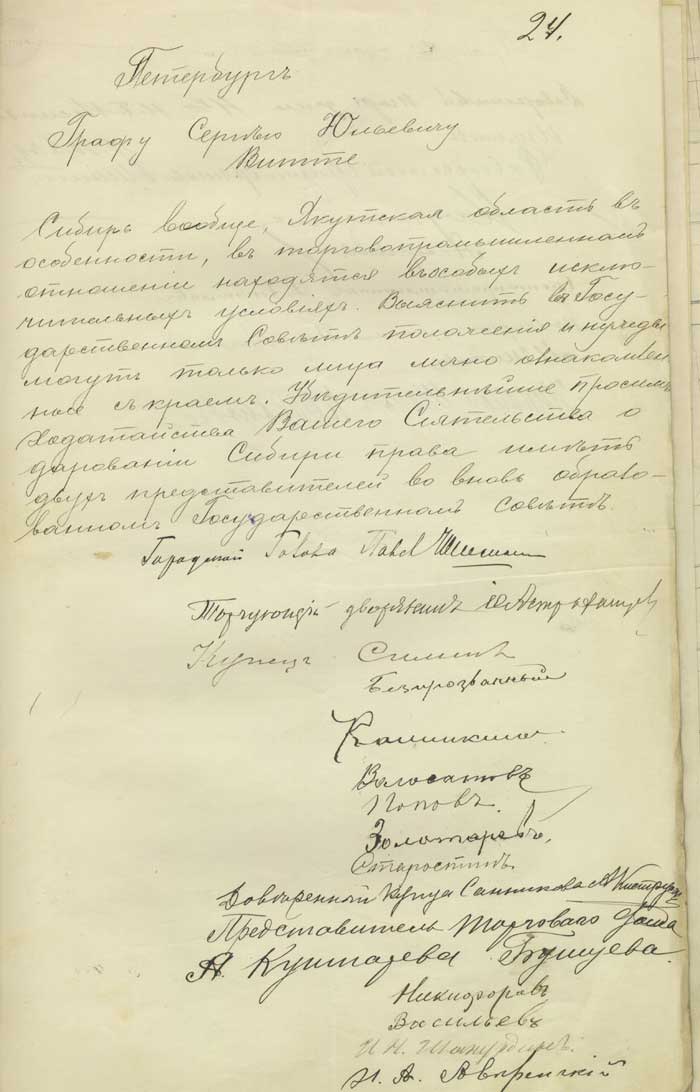 24.
Петербургъ
Графу Сергѣю Юльевичу
Витте
Сибирь вообще, Якутская область въ
особенности, въ торговопромышленномъ
отношеніи находятся въ особыхъ исклю-
чительныхъ условіяхъ. Выяснить въ Госу-
дарственномъ Совѣтѣ положенія и нужды
могутъ только лица лично ознакомлен
ные съ краемъ. Убѣдительнѣйше просимъ
Ходатайства Вашего Сіятельства о
дарованіи Сибири права имѣть
двухъ представителей во вновь образо-
ванномъ Государственномъ совѣтѣ.
Городской Голова Павел
Торгующій дворянинъ
Купецъ Силинъ
Безпрозванный
Калинкинъ
Волосатовъ
Поповъ.
Золотаревъ,
Старостинъ
Довѣренный купца Санникова
Представитель Торговаго Дома
А. Кушнарева
Никифоровъ
Васильевъ
И. Н.
И. А.